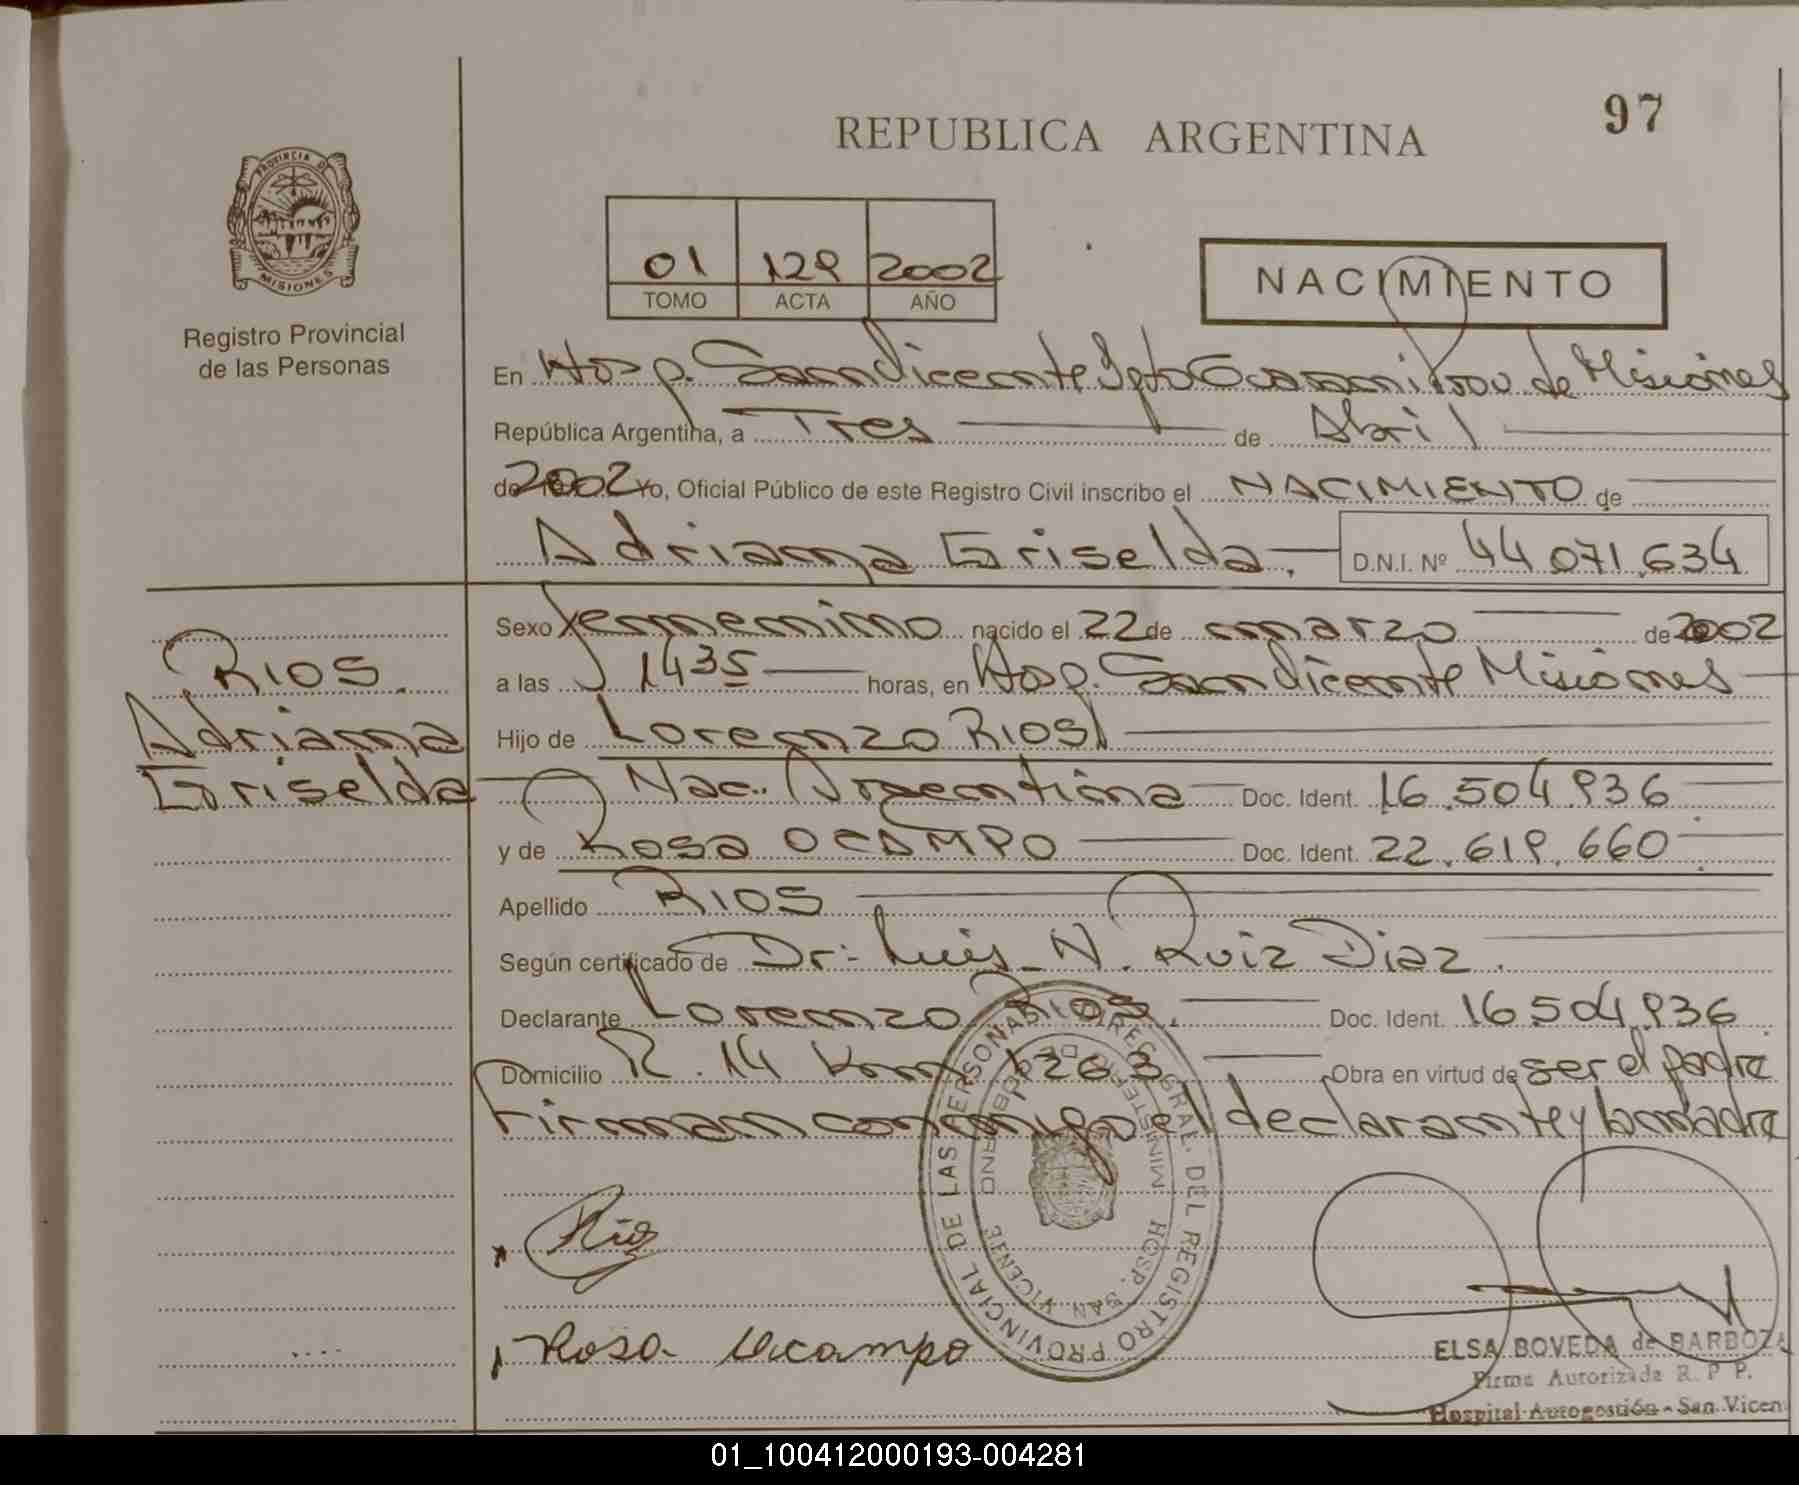 97
REPUBLICA ARGENTINA
PROVINCIA DE
MISIONES
Registro Provincial
de las Personas
01 129 2002
TOMO ACTA AÑO
NACIMIENTO
En Hosp. San Vicente Dpto Guarani Prov. de Misiones
República Argentina, a Tres de Abril
de 2002 Yo, Oficial Público de este Registro Civil inscribo el NACIMIENTO de
Adriana Griselda. D.N.I. Nº 44.071.634
Sexo femenino nacido el 22 de marzo de 2002
RIOS.
a las 1435 horas, en Hosp. San Vicente Misiones
Adriana
Hijo de Lorenzo RIOS
Griselda
Nac. Argentina Doc. Ident. 16.504.936
y de Rosa OCAMPO Doc. Ident. 22.619.660
Apellido RIOS
Según certificado de Dr: Luis N. Ruiz Diaz.
Declarante Lorenzo RIOS. Doc. Ident. 16.504.936
Domicilio R. 14 Km 1263 Obra en virtud de ser el padre
Firman conmigo el declarante y la madre
DIREC. GRAL. DEL REGISTRO PROVINCIAL DE LAS PERSONAS
MINISTERIO DE GOBIERNO
HOSP. SAN VICENTE
Rios
Rosa Ocampo
ELSA BOVEDA de BARBOZA
Firma Autorizada R. P. P.
Hospital Autogestión - San Vicen
01_100412000193-004281